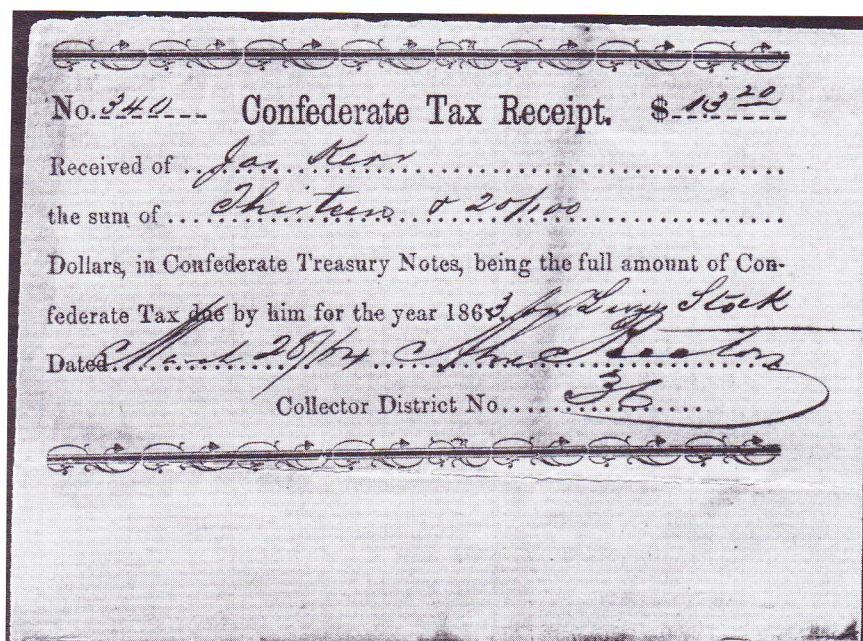 No. 340 Confederate Tax Receipt. $ 13 20
Received of Jas Kerr
the sum of Thirteen & 20/100
Dollars, in Confederate Treasury Notes, being the full amount of Con-
federate Tax due by him for the year 1863 for Live Stock
Dated March 28/64
Collector District No. 36